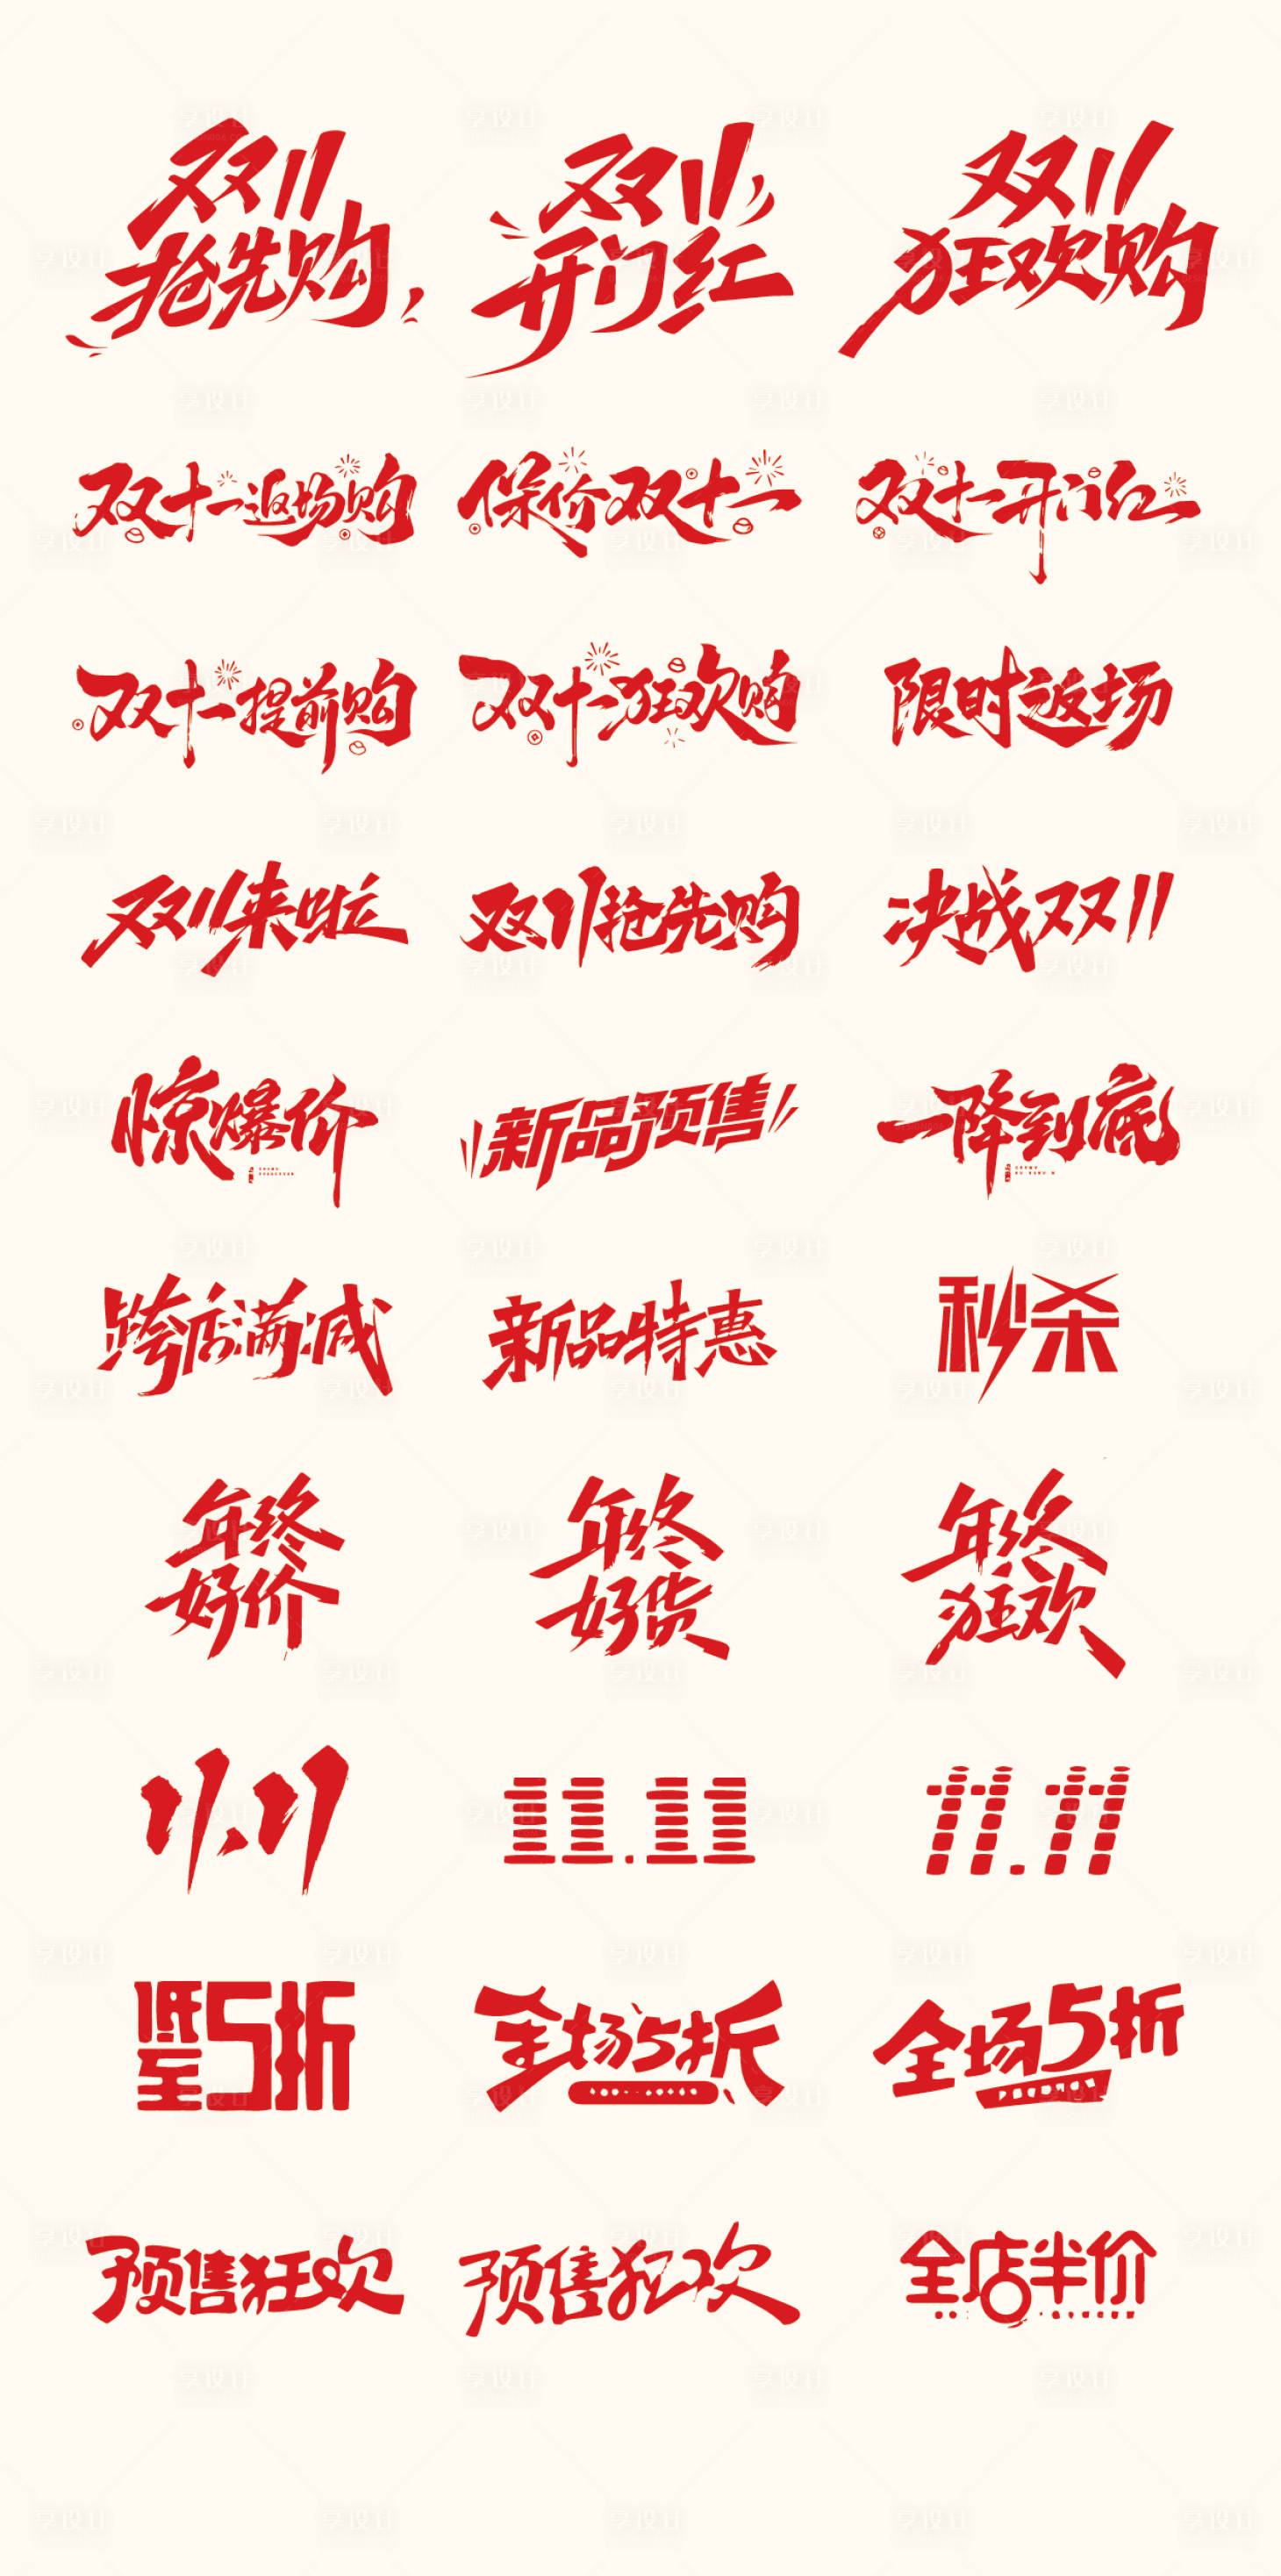 双11
抢先购
双11
开门红
双11
狂欢购
双十一返场购
保价双十一
双十一开门红
双十一提前购
双十一狂欢购
限时返场
双11来啦
双11抢先购
决战双11
惊爆价
新品预售
一降到底
跨店满减
新品特惠
秒杀
年终
好价
年终
好货
年终
狂欢
11.11
11.11
11.11
低至5折
全场5折
全场5折
预售狂欢
预售狂欢
全店半价
享设计